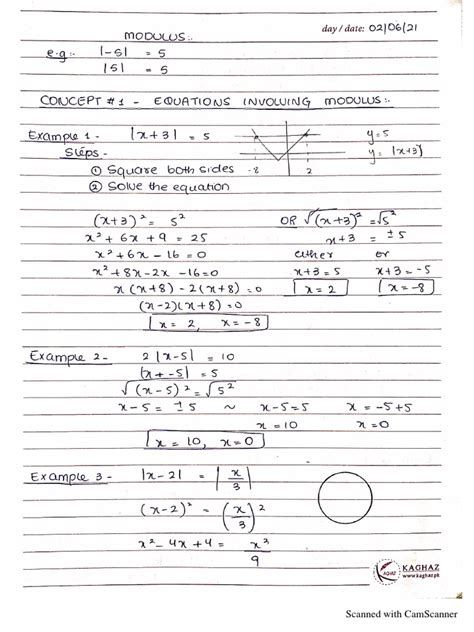 MODULUS:-
day / date: 02/06/21
e.g:- |-5| = 5
|5| = 5
CONCEPT #1 - EQUATIONS INVOLVING MODULUS:-
Example 1 - |x+3| = 5
y=5
Steps -
y= |x+3|
① Square both sides
-8 2
② Solve the equation
(x+3)² = 5² OR √(x+3)² = √5²
x² + 6x + 9 = 25 x+3 = ±5
x² + 6x - 16 = 0 either or
x² + 8x - 2x - 16 = 0 x+3 = 5 x+3 = -5
x (x+8) - 2(x+8) = 0 x = 2 x = -8
(x-2)(x+8) = 0
x = 2, x = -8
Example 2 - 2 |x-5| = 10
|x + -5| = 5
√(x-5)² = √5²
x-5 = ±5 ~ x-5=5 x = -5+5
x = 10 x = 0
x = 10, x = 0
Example 3 - |x-2| = |x/3|
(x-2)² = (x/3)²
x² - 4x + 4 = x²/9
KAGHAZ
www.kaghaz.pk
Scanned with CamScanner